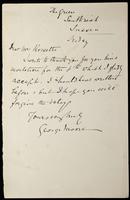 The Green
Southwick
Sussex
Friday
Dear Mr Rossetti
I write to thank you for you kind
invitation for the 9th which I fully
accept. I should have written
before but I hope you will
forgive the delay
Yours very truly
George Moore